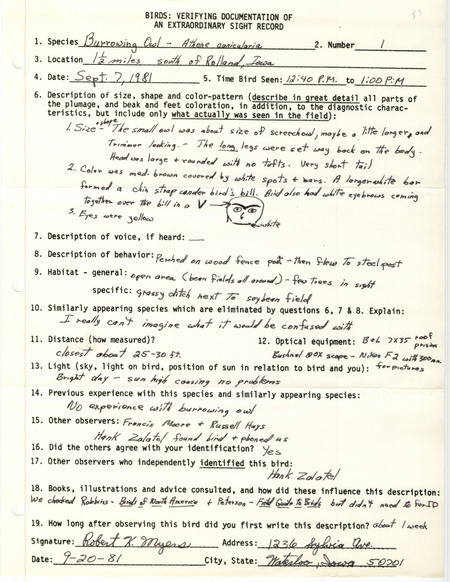 53
BIRDS: VERIFYING DOCUMENTATION OF
AN EXTRAORDINARY SIGHT RECORD
1. Species Burrowing Owl - Athene cunicularia 2. Number 1
3. Location 1 1/2 miles south of Rolland, Iowa
4. Date: Sept. 7, 1981 5. Time Bird Seen: 12:40 P.M. to 1:00 P.M
6. Description of size, shape and color-pattern (describe in great detail all parts of
the plumage, and beak and feet coloration, in addition, to the diagnostic charac-
teristics, but include only what actually was seen in the field):
1. Size + shape - The small owl was about size of screech owl, maybe a little larger, and
Trimmer looking. - The long legs were set way back on the body.
Head was large + rounded with no tufts. Very short tail
2. Color was med. brown covered by white spots + bars. A larger white bar
formed a chin strap under bird's bill. Bird also had white eyebrows coming
together over the bill in a V
3. Eyes were yellow
white
7. Description of voice, if heard:
8. Description of behavior: Perched on wood fence post - then flew to steel post
9. Habitat - general: open area (bean fields all around) - few trees in sight
specific: grassy ditch next to soybean field
10. Similarly appearing species which are eliminated by questions 6, 7 & 8. Explain:
I really can't imagine what it would be confused with
11. Distance (how measured)? 12. Optical equipment: B+L 7x35 roof prism
closest about 25-30 ft. Bushnel scope - Nikon F2 with 300mm for pictures
13. Light (sky, light on bird, position of sun in relation to bird and you):
Bright day - sun high causing no problems
14. Previous experience with this species and similarly appearing species:
No experience with burrowing owl
15. Other observers: Francis Moore + Russell Hays
Hank Zaletel found bird + phoned us
16. Did the others agree with your identification? Yes
17. Other observers who independently identified this bird:
Hank Zaletel
18. Books, illustrations and advice consulted, and how did these influence this description:
We checked Robbins - Birds of North America + Peterson - Field Guide to Birds but didn't need to for ID
19. How long after observing this bird did you first write this description? about 1 week
Signature: Robert K. Myers Address: 1236 Sylvia Ave.
Date: 9-20-81 City, State: Waterloo, Iowa 50701